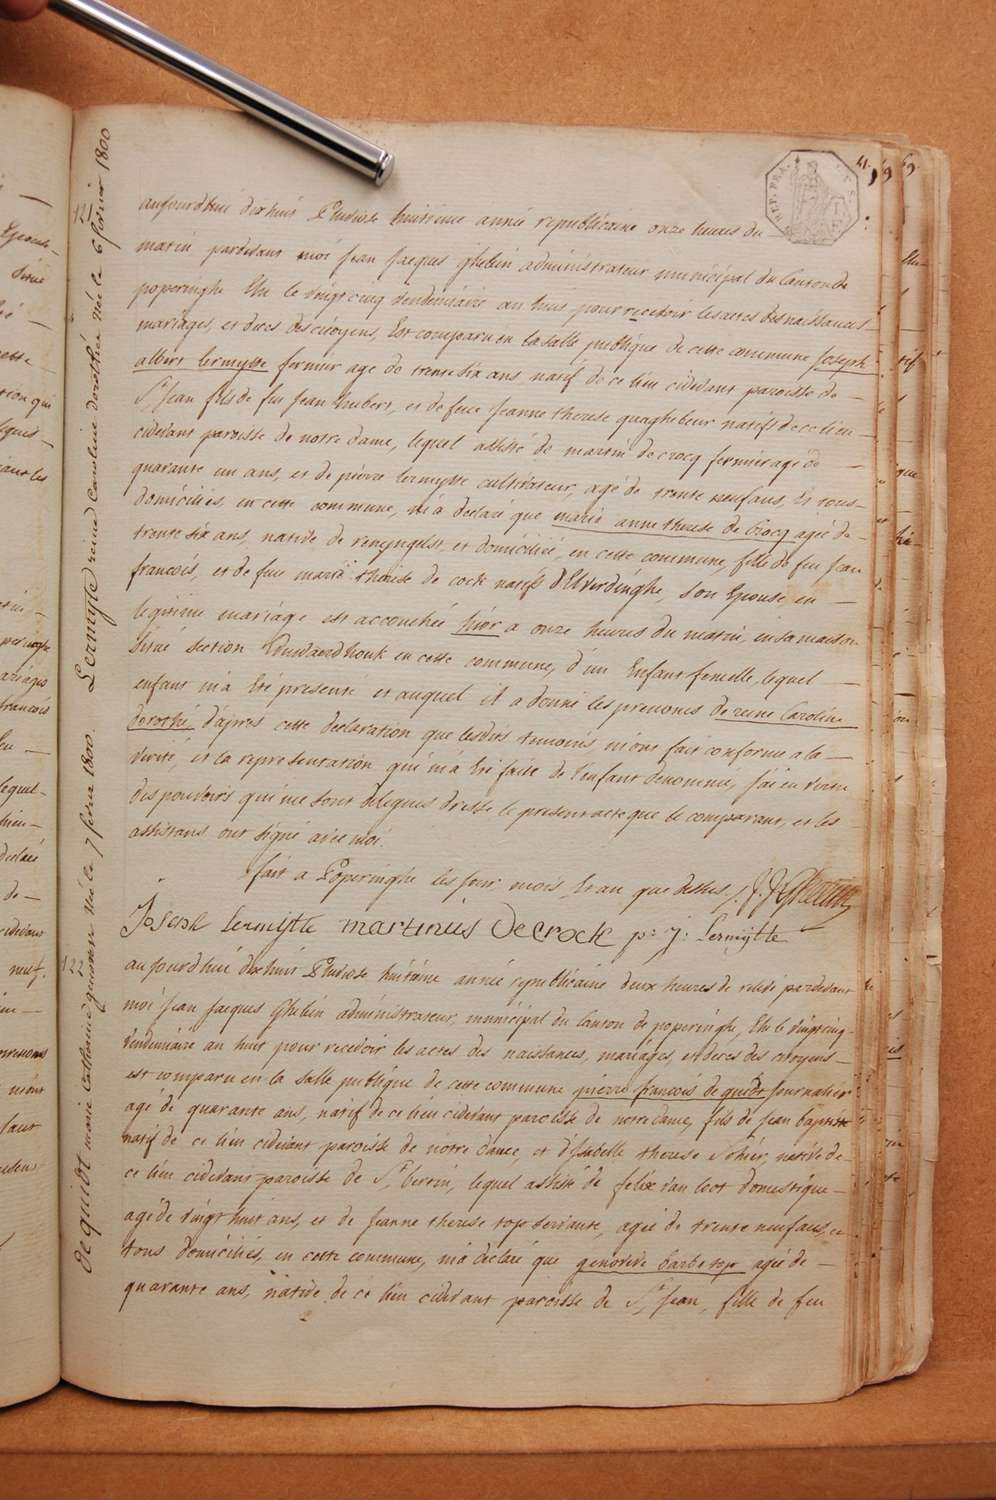 41.
121
Lermytte reine Caroline dorothée née le 6 fevrier 1800
aujourdhui dixhuit Pluviose huitieme année republicaine onze heures du
matin pardevant moi Jean Jacques Ghelein administrateur municipal du Canton de
poperinghe Elu le vingt cinq vendemiaire an huit pour recevoir les actes des naissances
mariages, et deces des citoyens, Est comparu en la salle publique de cette commune Joseph
albert Lermytte fermier agé de trente six ans natif de ce lieu cidevant paroisse de
St Jean fils de feu Jean hubert, et de feue Jeanne therese quaghebeur natifs de ce lieu
cidevant paroisse de notre dame, lequel assisté de martin de crocq fermier agé de
quarante un ans, et de pierre Lermytte cultivateur, agé de trente neuf ans, Et tous
domiciliés, en cette commune, m'a declaré que marie anne therese de Crocq agée de
trente six ans, native de renynghe, et domiciliée, en cette commune, fille de feu Jean
francois, et de feue marie therese de cock natifs d'Elverdinghe son Epouse, en
legitime mariage est accouchée hier a onze heures du matin, en sa maison
située section en cette commune, d'un Enfant femelle, lequel
enfant m'a été presenté et auquel il a donné les prenoms de reine Caroline
dorothé d'apres cette declaration que lesdits temoins m'ont fait conforme a la
verité, et la representation qui m'a été faite de l'enfant denommé, j'ai en vertu
des pouvoirs qui me sont delegués dressé le present acte que le comparant, et les
assistans ont signé avec moi.
fait a Poperinghe les jour mois Et an que dessus. J. J. Ghelein
Joseph Lermytte martinus Decrock p: J: Lermytte
122
dequidt marie Catherine née le 7 fevrier 1800.
aujourdhui dixhuit Pluviose huitieme année republicaine deux heures de relevé pardevant
moi Jean Jacques Ghelein administrateur, municipal du Canton de poperinghe, Elu le vingt cinq
vendemiaire an huit pour recevoir les actes des naissances, mariages, et deces des citoyens
est comparu en la salle publique de cette commune pierre francois de quidt journalier
agé de quarante ans, natif de ce lieu cidevant paroisse de notre dame, fils de Jean baptiste
natif de ce lieu cidevant paroisse de notre dame, et d'Isabelle therese native de
ce lieu cidevant paroisse de St Bertin, lequel assisté de felix van domestique
agé de vingt huit ans, et de Jeanne therese top servante, agée de trente neuf ans, et
tous domiciliés, en cette commune, m'a declaré que genevieve barbe top agée de
quarante ans, native de ce lieu cidevant paroisse de St Jean, fille de feu